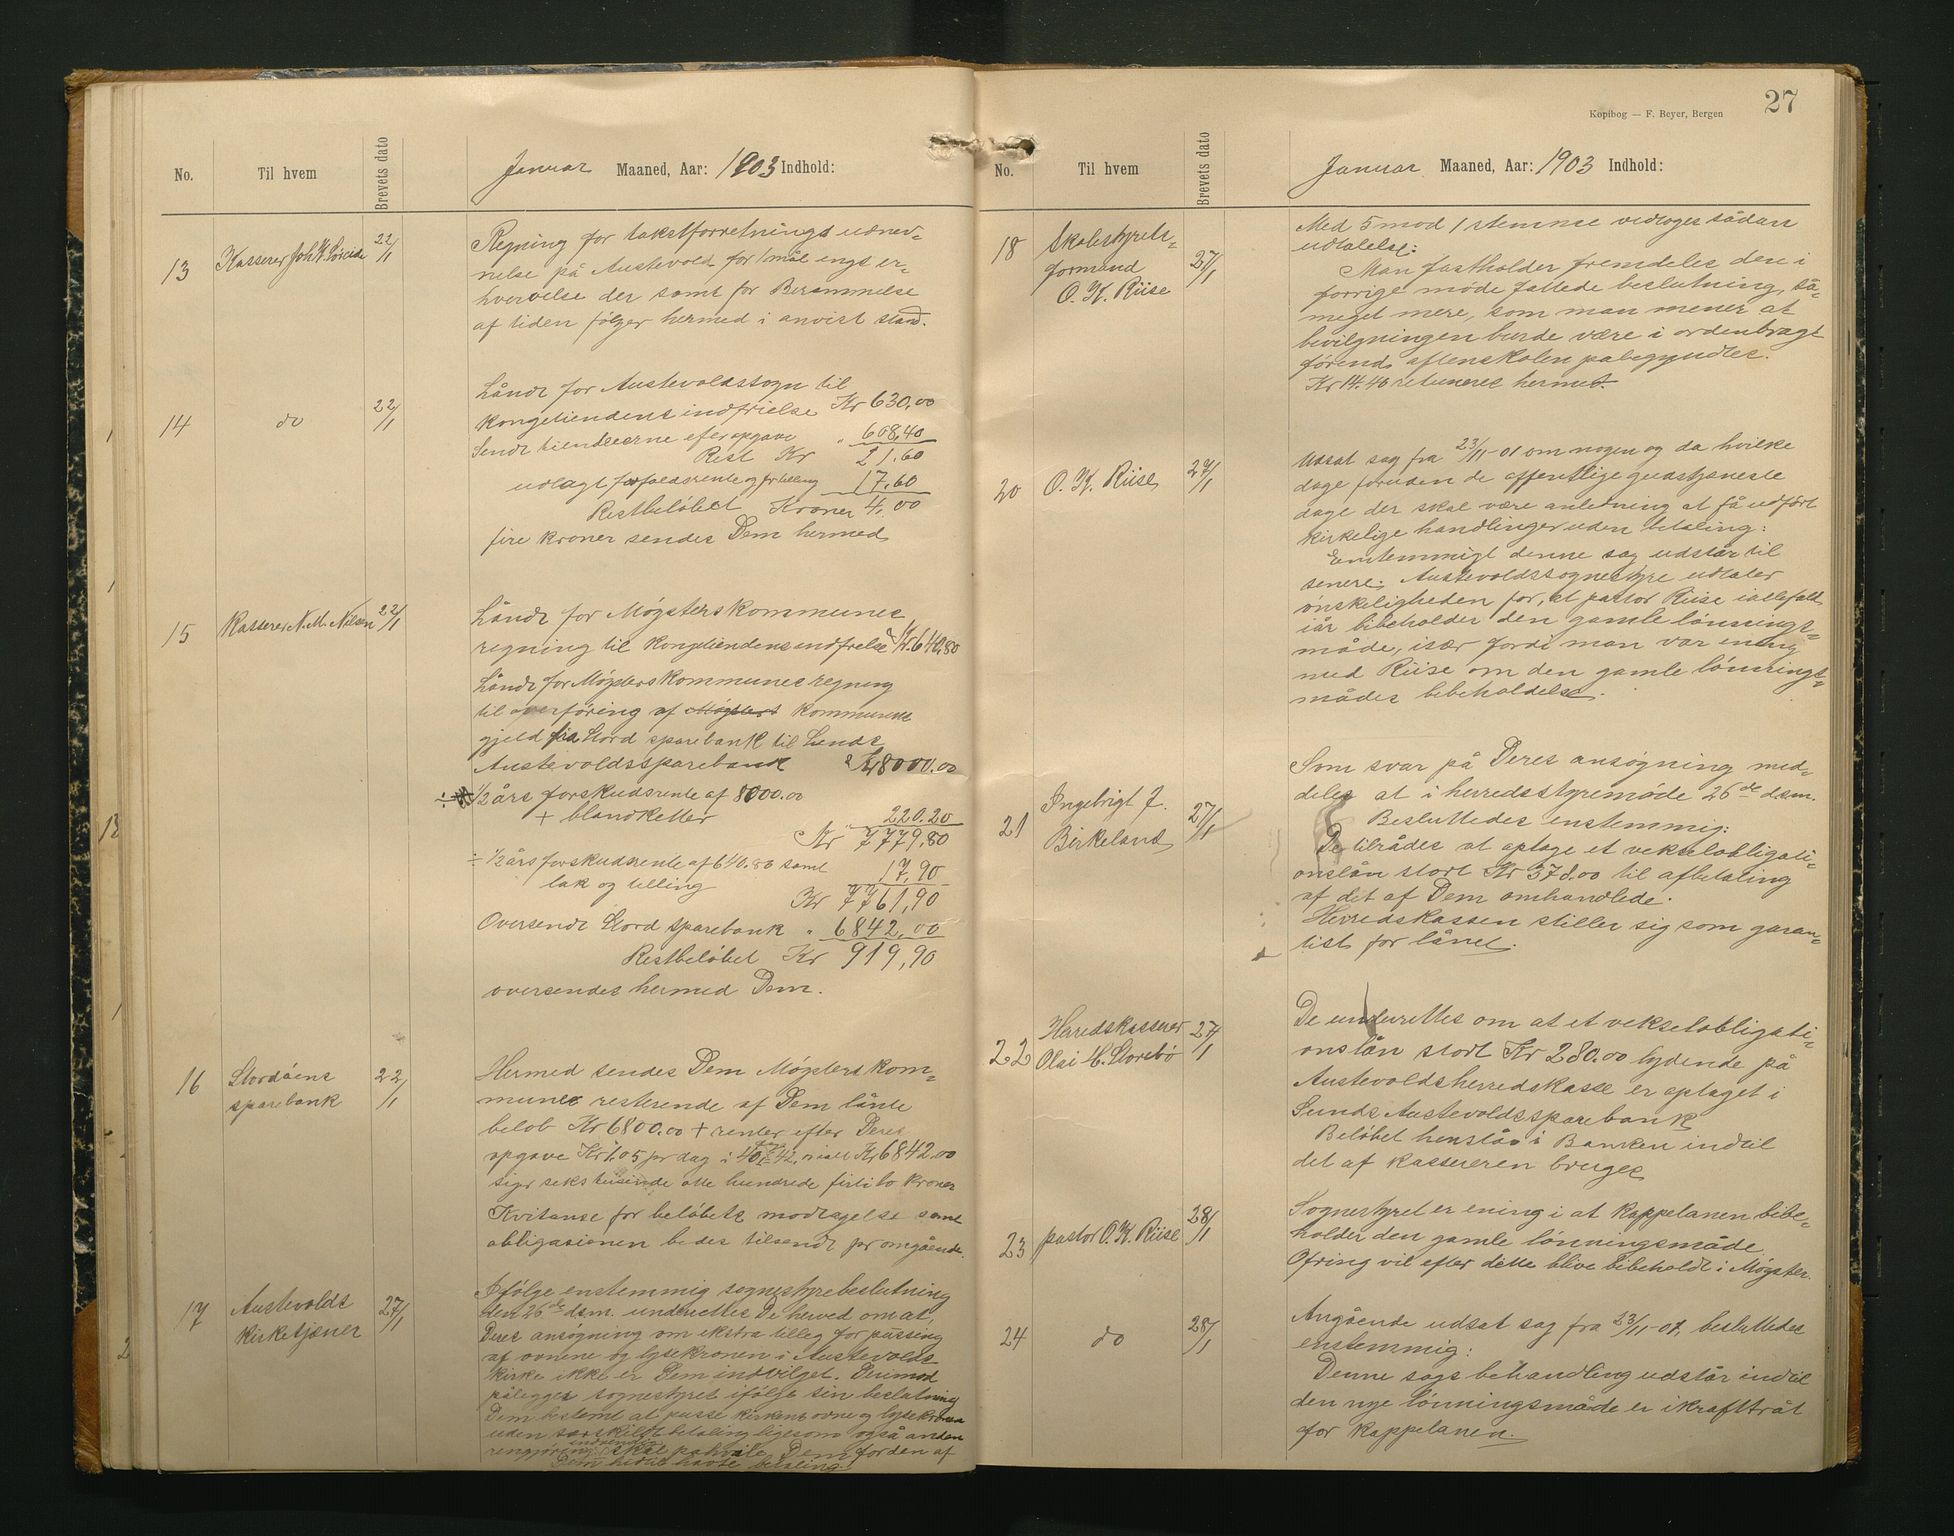 No. Til hvem Brevets dato Januar Maaned, Aar: 1903 Indhold:
13 Kasserer Joh. K. 22/1
Regning for takstforretnings udnev-
nelse på Austevold for 1 mål engs er-
hvervelse der samt for Berammelse
af tiden følger hermed i anvist stand.
14 do 22/1
Lånt for Austevoldssogn til
kongetiendens indfrielse Kr 630,00
Sendt tiendeeierne efter opgave " 608,40
Rest Kr 21.60
udlagt forfaldsrente og 17,60
Restbeløbet Kroner 4,00
fire kroner sendes Dem hermed
15 Kasserer N. M. Nilsen 22/1
Lånt for Møgsters kommunes
regning til kongetiendens indfrielse Kr. 640,80
Lånt for Møgsters kommunes regning
til overføring af Møgsters kommunes
gjeld fra Stord sparebank til Sunds
Austevolds sparebank 8000.00
÷ 1/2 års forskudsrente af 8000.00
+ blanketter 220.20
Kr 7779,80
÷ 1/2 års forskudsrente af 640.80 samt 17,90
lak og
Kr 7761,90
Oversendt Stord sparebank " 6842,00
Restbeløbet Kr 919,90
oversendes hermed Dem.
16 Stordøens sparebank 22/1
Hermed sendes Dem Møgsters kom-
munes resterende af Dem lånte
beløb Kr 6800.00 + renter efter Deres
opgave Kr 1.05 pr dag i 40 = 42, ialt Kr 6842.00
siger seks tusinde otte hundrede firti to kroner
Kvitanse for beløbets modtagelse samt
obligasionen bedes tilsendt pr omgående.
17 Austevolds kirketjener 27/1
Ifølge enstemmig sognestyrebeslutning
den 26de dsm. underrettes De herved om at,
Deres ansøgning om ekstra tilleg for pussing
af ovnene og lysekronen i Austevolds
kirke ikke er Dem indvilget. Derimod
pålegges sognestyret ifølge sin beslutning
Dem bestemt at pusse kirkens ovne og lysekronen
uden særskilt betaling ligesom også anden
indvendig
rengjøring skal påhvile Dem for den af
Dem hidtil havte betaling.
Kopibog — F. Beyer, Bergen 27
No. Til hvem Brevets dato Januar Maaned, Aar: 1903 Indhold:
18 Skolestyrets-
formand
O. K. Riise 27/1
Med 5 mod 1 stemme vedtoges sådan
udtalelse:
Man fastholder fremdeles den i
forrige møde fattede beslutning, så-
meget mere, som man mener at
bevilgningen burde være i orden bragt
førend aftenskolen påbegyndtes.
Kr 14.40 retuneres hermed.
20 O. K. Riise 27/1
Udsat sag fra 23/11-01 om nogen og da hvilke
dage foruden de offentlige gudstjeneste
dage der skal være anledning at få udført
kirkelige handlinger uden betaling:
Enstemmigt denne sag udstår til
senere. Austevolds sognestyre udtaler
ønskeligheden for, at pastor Riise iallefald
iår bibeholder den gamle lønnings-
måde, især fordi man var enig
med Riise om den gamle lønnings-
mådes bibeholdelse.
21 Ingebrigt J.
Birkeland 27/1
Som svar på Deres ansøgning med-
deles at i herredsstyremøde 26de dsm.
Besluttedes enstemmig:
De tilrådes at optage et vekselobligati-
onslån stort Kr 378.00 til afbetaling
af det af Dem omhandlede.
Herredskassen stiller sig som garan-
tist for lånet.
22 Herredskasserer
Olai H. Storebø 27/1
De underrettes om at et vekselobligati-
onslån stort Kr 280.00 lydende på
Austevolds herredskasse er optaget i
Sunds Austevolds sparebank
Beløbet henstår i Banken indtil
det af kassereren bruges
23 pastor O. K. Riise 28/1
Sognestyret er ening i at kappelanen bibe-
holder den gamle lønningsmåde
Ofring vil efter dette blive bibeholdt i Møgster.
24 do 28/1
Angående udsat sag fra 23/11-01, besluttedes
enstemmig:
Denne sags behandling udstår indtil
den nye lønningsmåde er ikrafttråt
for kappelanen.